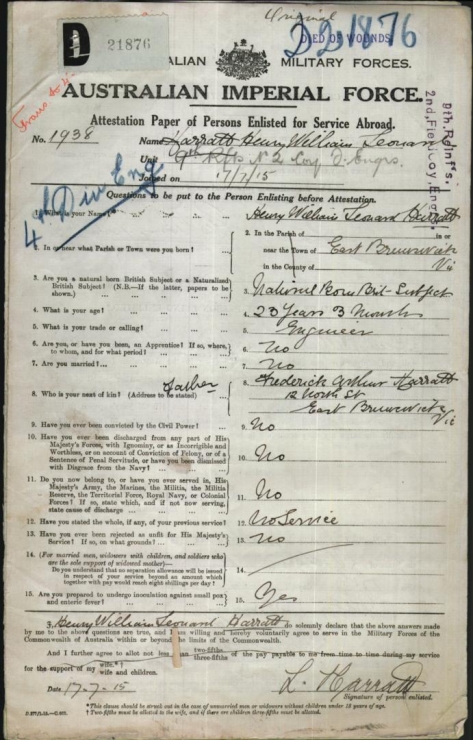 Original
DIED OF WOUNDS
DD1876
D 21876
AUSTRALIAN MILITARY FORCES.
AUSTRALIAN IMPERIAL FORCE.
Attestation Paper of Persons Enlisted for Service Abroad.
No. 1938 Name Harratt Henry William Leonard
Unit 9th Rfts No 2 Coy F. Engrs.
Joined on 17/7/15
9th. Reinfts:
2nd. Field Coy. Engrs
4th Div Eng
Questions to be put to the Person Enlisting before Attestation.
1. What is your Name? 1. Henry William Leonard Harratt
2. In or near what Parish or Town were you born? 2. In the Parish of in or
near the Town of East Brunswick
in the County of Vic
3. Are you a natural born British Subject or a Naturalised
British Subject? (N.B.—If the latter, papers to be
shown.) 3. National Born Brit- Subject
4. What is your age? 4. 23 Years 3 Months
5. What is your trade or calling? 5. Engineer
6. Are you, or have you been, an Apprentice? If so, where,
to whom, and for what period? 6. No
7. Are you married? 7. No
Father
8. Who is your next of kin? (Address to be stated) 8. Frederick Arthur Harratt
12 North St
East Brunswick
Vic
9. Have you ever been convicted by the Civil Power? 9. No
10. Have you ever been discharged from any part of His
Majesty's Forces, with Ignominy, or as Incorrigible and
Worthless, or on account of Conviction of Felony, or of a
Sentence of Penal Servitude, or have you been dismissed
with Disgrace from the Navy? 10. No
11. Do you now belong to, or have you ever served in, His
Majesty's Army, the Marines, the Militia, the Militia
Reserve, the Territorial Force, Royal Navy, or Colonial
Forces? If so, state which, and if not now serving,
state cause of discharge 11. No
12. Have you stated the whole, if any, of your previous service? 12. No Service
13. Have you ever been rejected as unfit for His Majesty's
Service? If so, on what grounds? 13. No
14. (For married men, widowers with children, and soldiers who
are the sole support of widowed mother)—
Do you understand that no separation allowance will be issued
in respect of your service beyond an amount which
together with pay would reach eight shillings per day? 14.
15. Are you prepared to undergo inoculation against small pox
and enteric fever? 15. Yes
I, Henry William Leonard Harratt do solemnly declare that the above answers made
by me to the above questions are true, and I am willing and hereby voluntarily agree to serve in the Military Forces of the
Commonwealth of Australia within or beyond the limits of the Commonwealth.
And I further agree to allot not less than two-fifths three-fifths of the pay payable to me from time to time during my service
for the support of my wife.*† wife and children.
Date 17-7-15 L. Harratt
Signature of person enlisted.
*This clause should be struck out in the case of unmarried men or widowers without children under 18 years of age.
† Two-fifths must be allotted to the wife, and if there are children three-fifths must be allotted.